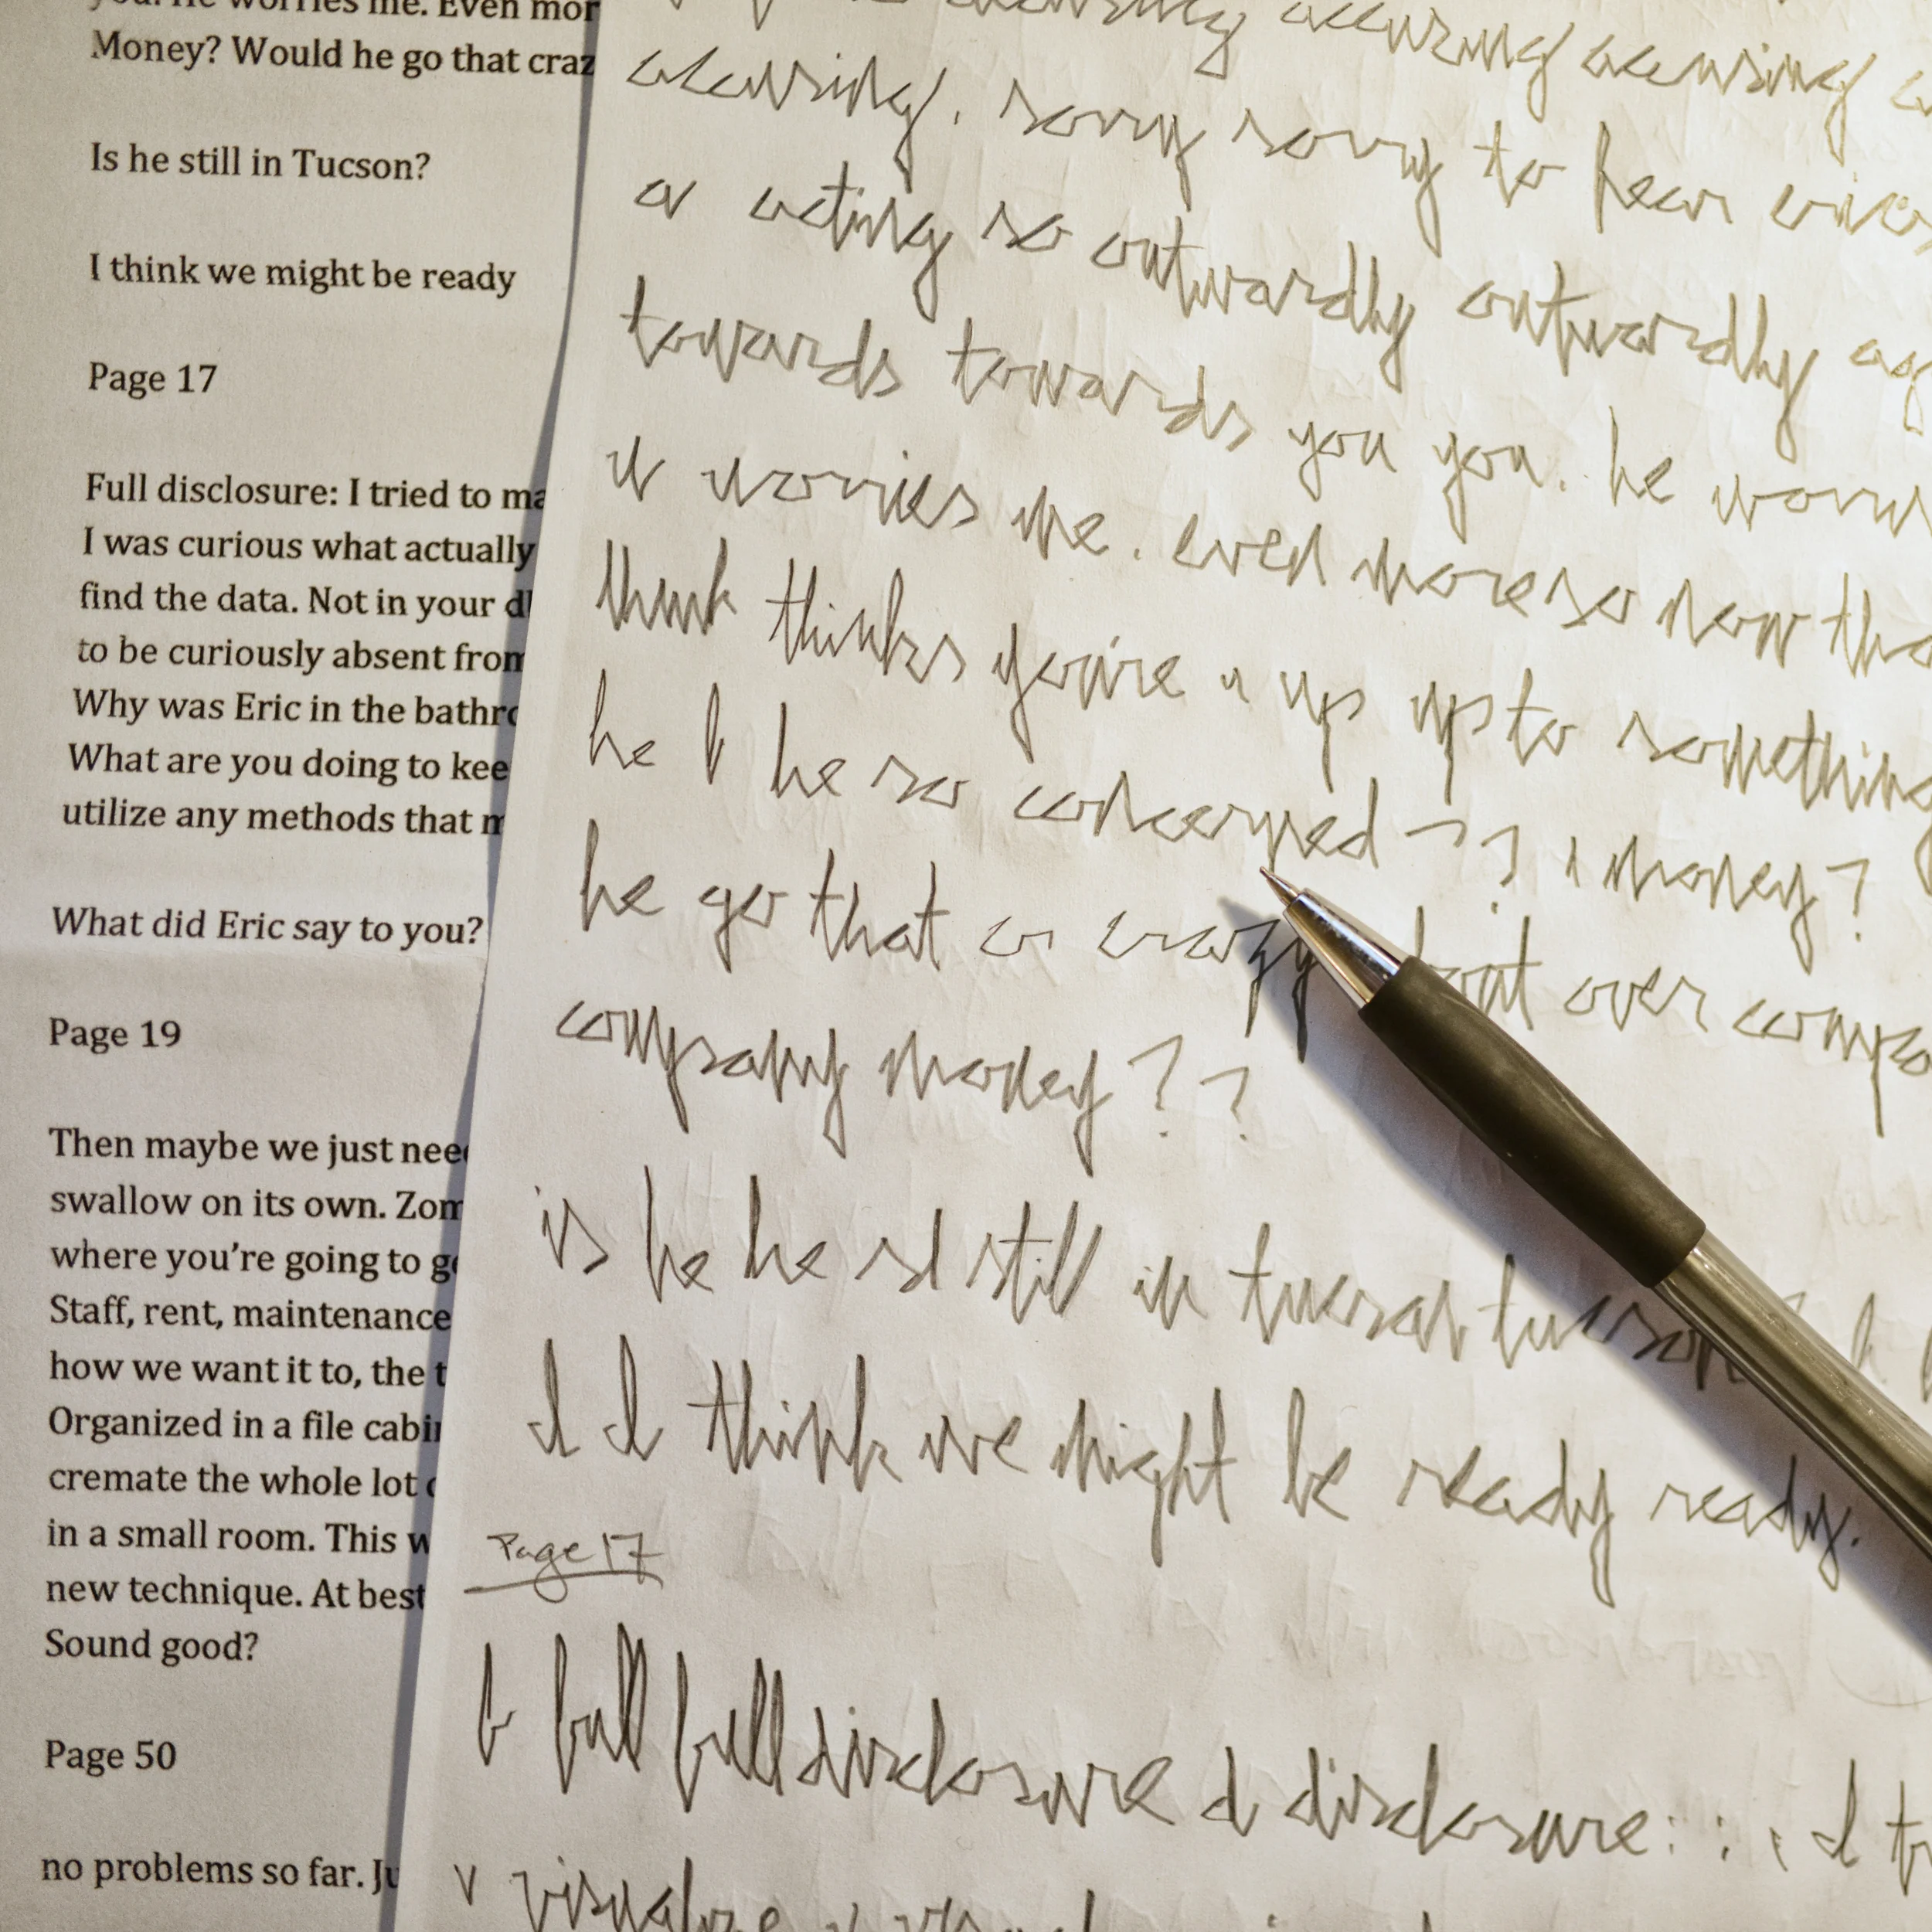 you. He worries me. Even mor
Money? Would he go that craz
Is he still in Tucson?
I think we might be ready
Page 17
Full disclosure: I tried to ma
I was curious what actually
find the data. Not in your d
to be curiously absent from
Why was Eric in the bathro
What are you doing to kee
utilize any methods that m
What did Eric say to you?
Page 19
Then maybe we just need
swallow on its own. Zom
where you're going to go
Staff, rent, maintenance
how we want it to, the t
Organized in a file cabin
cremate the whole lot o
in a small room. This w
new technique. At best
Sound good?
Page 50
no problems so far. Ju
accusing accusing
accusing. sorry sorry to hear eric
a acting so outwardly outwardly ag
towards towards you you. he worri
w worries me. even more so now tha
think thinks you're u up up to something
he h he so concerned ?? money?
he go that cr crazy that over compa
company money??
is he he st still in tucson tucson
I I think we might be ready ready.
Page 17
f full full disclosure d disclosure: : : I tr
v visualize